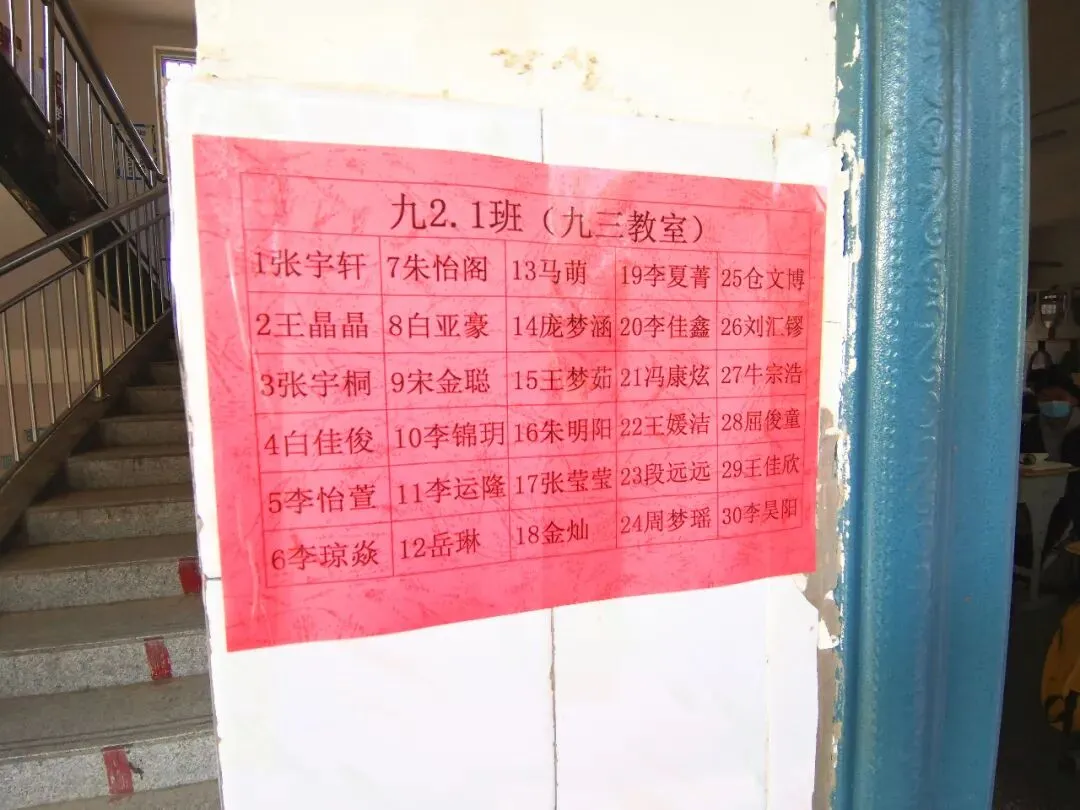 九2.1班（九三教室）
1张宇轩 7朱怡阁 13马萌 19李夏菁 25仓文博
2王晶晶 8白亚豪 14庞梦涵 20李佳鑫 26刘汇镠
3张宇桐 9宋金聪 15王梦茹 21冯康炫 27牛宗浩
4白佳俊 10李锦玥 16朱明阳 22王媛洁 28屈俊童
5李怡萱 11李运隆 17张莹莹 23段远远 29王佳欣
6李琼焱 12岳琳 18金灿 24周梦瑶 30李昊阳